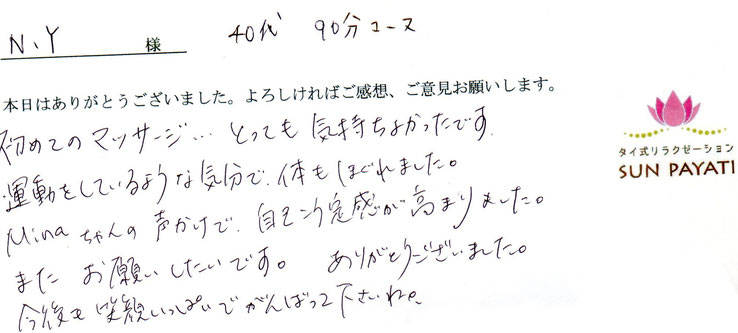 N、Y 様 40代 90分コース
本日はありがとうございました。よろしければご感想、ご意見お願いします。
初めてのマッサージ… とっても 気持ちよかったです
運動をしているような気分で、体もほぐれました。
Minaちゃんの声かけで、自己こう定感が高まりました。
また お願いしたいです。 ありがとうございました。
今後も笑顔いっぱいでがんばって下さいね。
タイ式リラクゼーション
SUN PAYATI